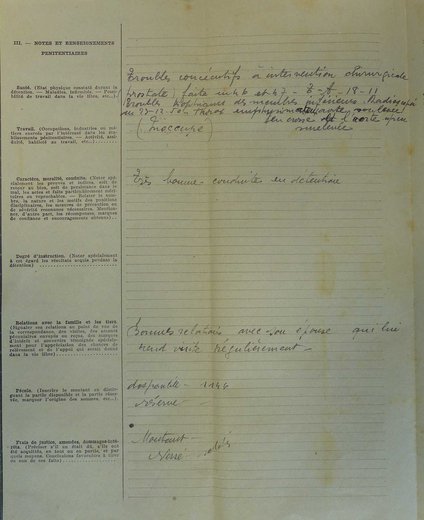 III. — NOTES ET RENSEIGNEMENTS
PÉNITENTIAIRES
Santé. (État physique constaté durant la
détention. — Maladies, infirmités. — Possi-
bilité de travail dans la vie libre, etc.)
Troubles consécutifs à intervention chirurgicale
prostate) faite en 46 et 47 -
Troubles des membres inférieurs.
Travail. (Occupations, industries ou mé-
tiers exercés par l'intéressé dans les éta-
blissements pénitentiaires. — Activité, apti-
tude, habileté au travail, etc.)
Caractère, moralité, conduite. (Noter spé-
cialement les preuves et indices, soit de
retour au bien, soit de persistance dans le
mal, les actes et faits particulièrement méri-
toires ou reprochables. — Relater le nom-
bre, la nature et les motifs des punitions
disciplinaires, les mesures de précaution ou
de sévérité reconnues nécessaires. Mention-
ner, d'autre part, les récompenses, marques
de confiance et encouragements obtenus)
Très bonne conduite en détention
Degré d'instruction. (Noter spécialement
à cet égard les résultats acquis pendant la
détention)
Relations avec la famille et les tiers.
(Signaler ces relations au point de vue de
la correspondance, des visites, des secours
pécuniaires envoyés ou reçus, des marques
d'intérêt et souvenirs témoignés spéciale-
ment pour l'appréciation des chances de
relèvement et de l'appui qui serait donné
dans la vie libre)
Bonnes relations avec son épouse qui lui
rend visite régulièrement -
Pécule. (Inscrire le montant en distin-
guant la partie disponible et la partie réser-
vée, marquer l'origine des sommes, etc.)
disponible - 1146
réserve
Frais de justice, amendes, dommages-inté-
rêts. (Préciser s'il en était dû, s'ils ont
été acquittés, en tout ou en partie, et par
quels moyens. Conclusions favorables à tirer
ou non de ces faits)
Montant -
Versé -